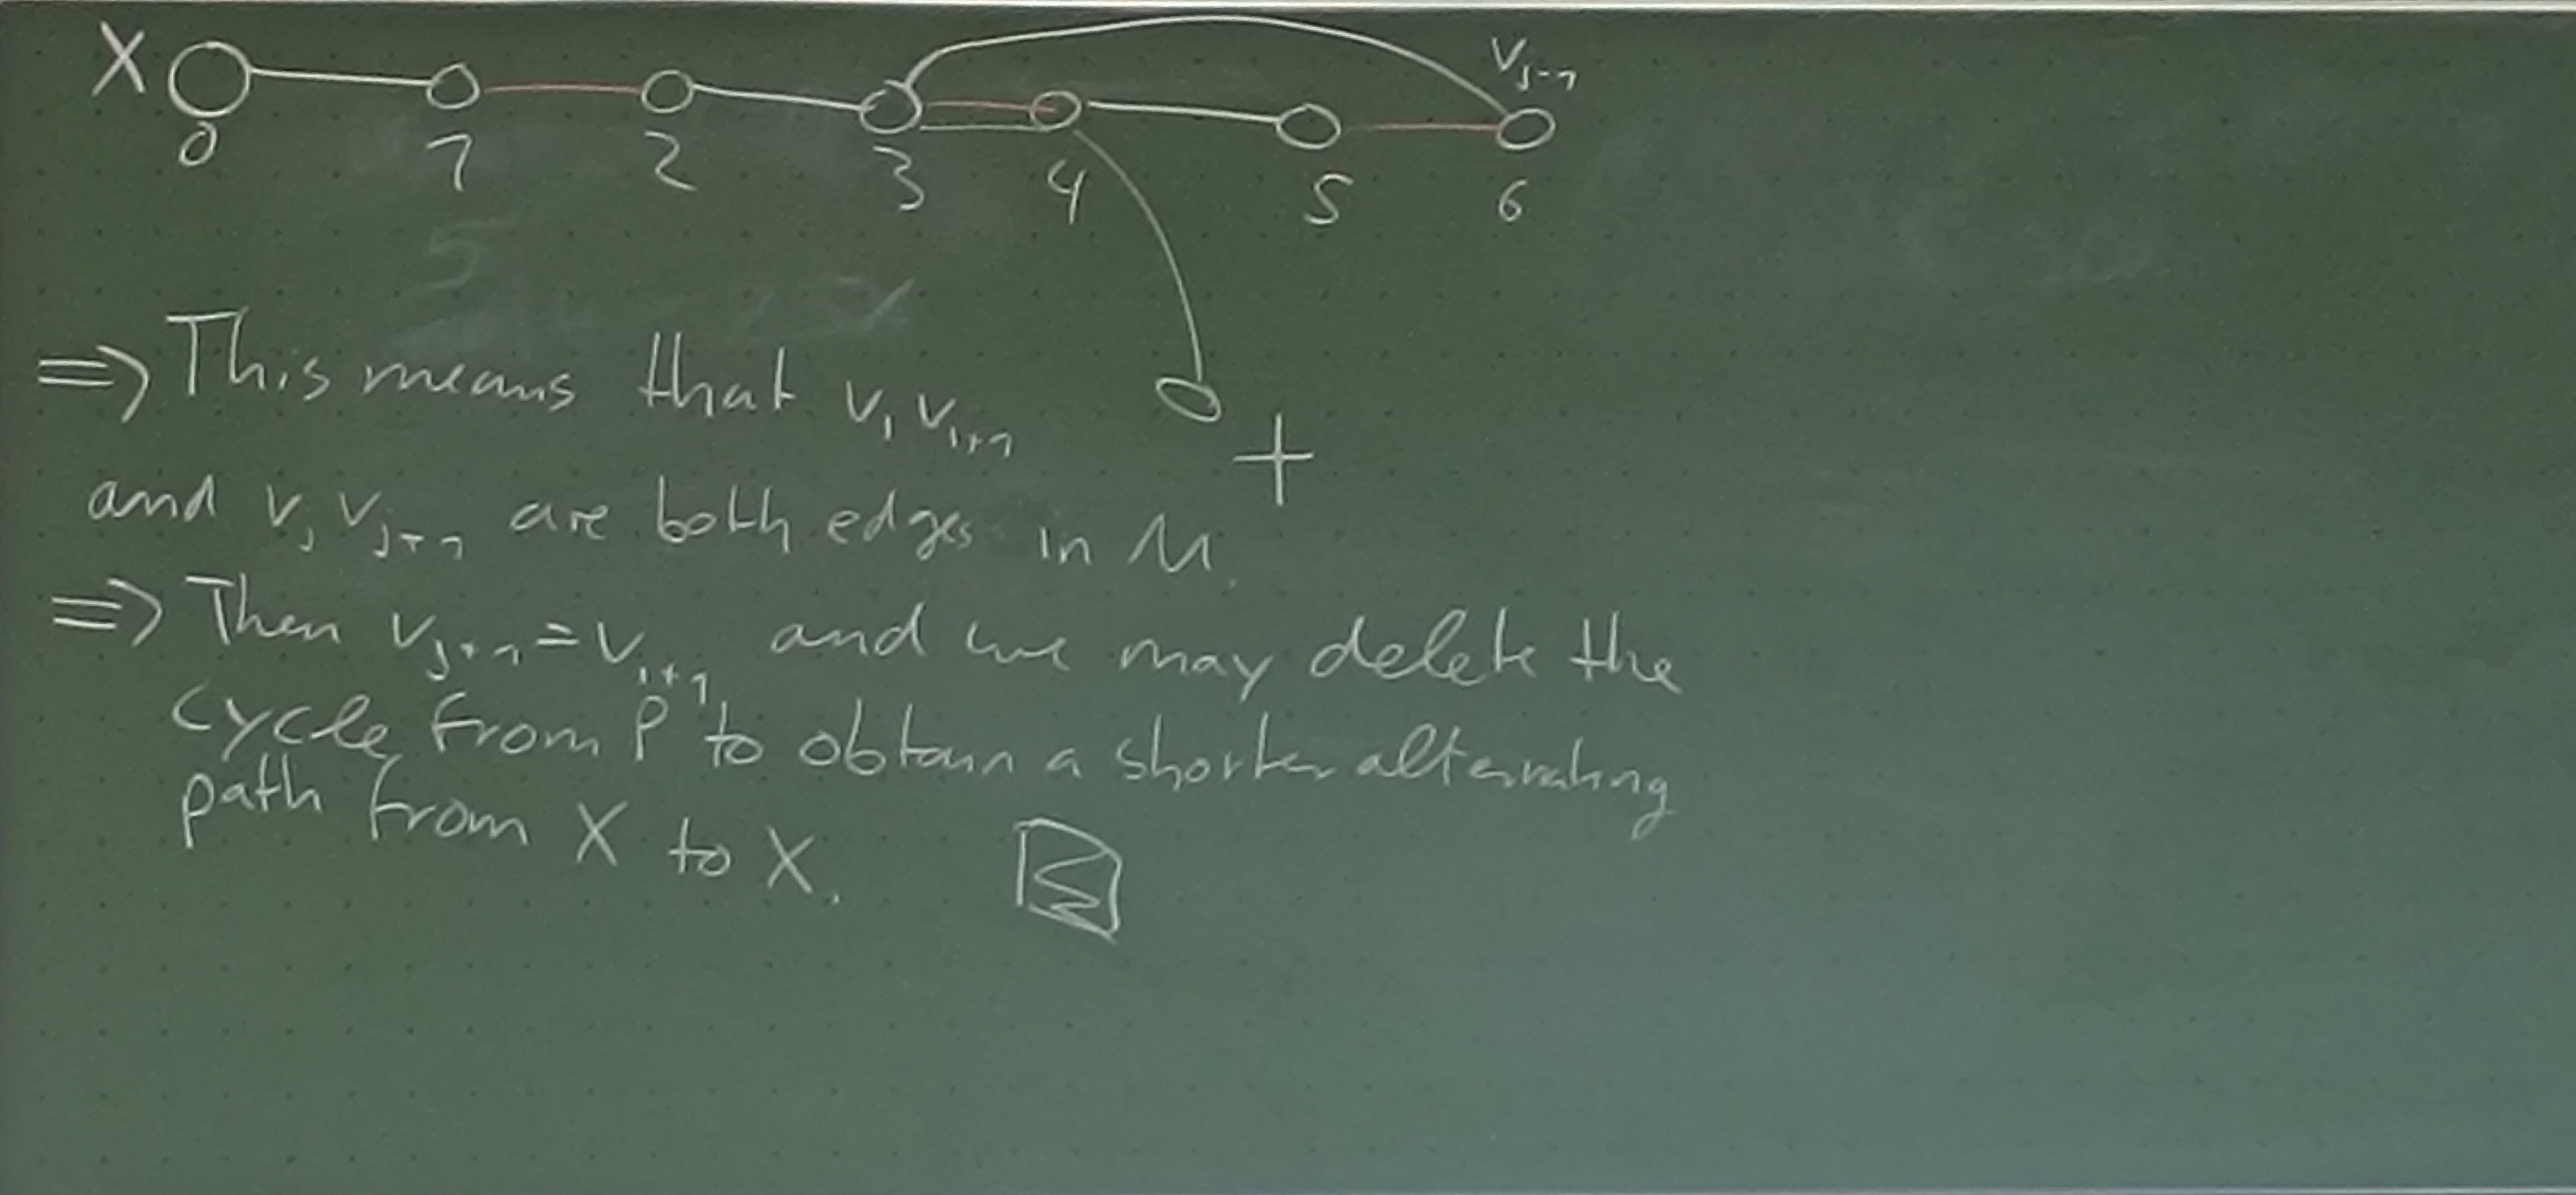 X
v_{j-1}
0 1 2 3 4 5 6
⇒ This means that v_i v_{i+1}
+
and v_j v_{j+1} are both edges in M.
⇒ Then v_{j+1} = v_{i+1} and we may delete the
cycle from P to obtain a shorter alternating
path from X to X.